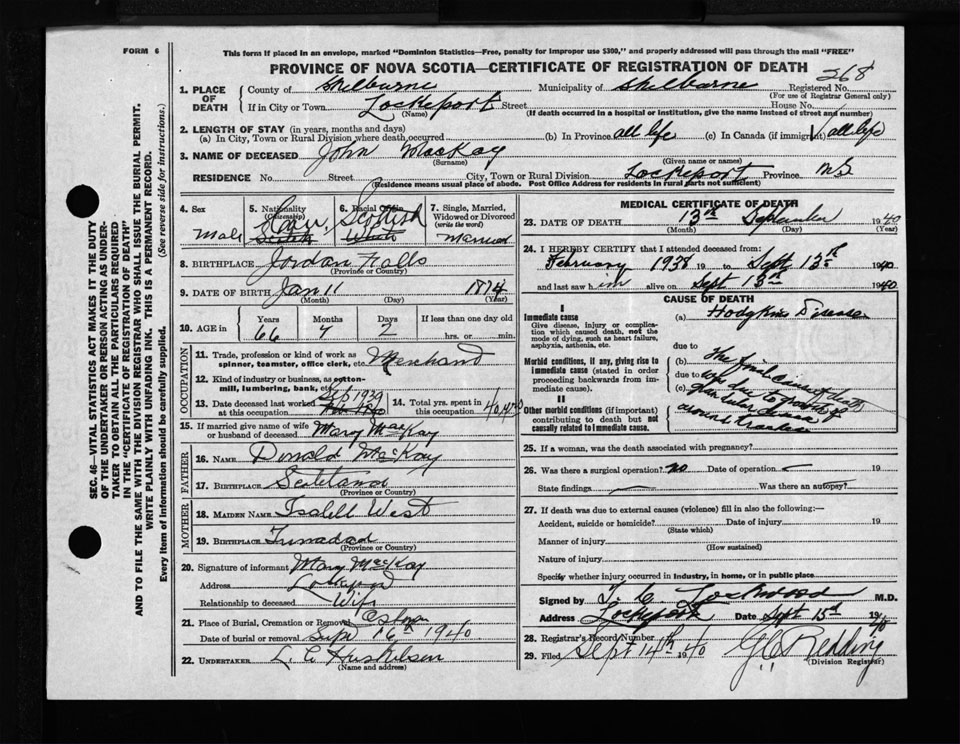 FORM 6
This form if placed in an envelope, marked "Dominion Statistics—Free, penalty for improper use $300," and properly addressed will pass through the mail "FREE"
PROVINCE OF NOVA SCOTIA—CERTIFICATE OF REGISTRATION OF DEATH
268
SEC. 46—VITAL STATISTICS ACT MAKES IT THE DUTY
OF THE UNDERTAKER OR PERSON ACTING AS UNDER-
TAKER TO OBTAIN ALL THE PARTICULARS REQUIRED
IN THE "CERTIFICATE OF REGISTRATION OF DEATH"
AND TO FILE THE SAME WITH THE DIVISION REGISTRAR WHO SHALL ISSUE THE BURIAL PERMIT.
WRITE PLAINLY WITH UNFADING INK. THIS IS A PERMANENT RECORD.
Every item of information should be carefully supplied. (See reverse side for instructions.)
1. PLACE OF DEATH County of Shelburne Municipality of Shelburne Registered No.
(For use of Registrar General only)
If in City or Town Lockeport Street House No.
(Name) (If death occurred in a hospital or institution, give the name instead of street and number)
2. LENGTH OF STAY (in years, months and days)
(a) In City, Town or Rural Division where death occurred (b) In Province all life (c) In Canada (if immigrant) all life
3. NAME OF DECEASED John MacKay
(Surname) (Given name or names)
RESIDENCE No. Street City, Town or Rural Division Lockeport Province N.S
(Residence means usual place of abode. Post Office Address for residents in rural parts not sufficient)
4. Sex Male
5. Nationality (Citizenship) Can. Scotch
6. Racial Origin Scottish White
7. Single, Married, Widowed or Divorced (write the word) Married
8. BIRTHPLACE Jordan Falls
(Province or Country)
9. DATE OF BIRTH Jan 11 1874
(Month) (Day) (Year)
10. AGE in Years Months Days If less than one day old
66 7 2 hrs. or min.
OCCUPATION
11. Trade, profession or kind of work as spinner, teamster, office clerk, etc. Merchant
12. Kind of industry or business, as cotton-mill, lumbering, bank, etc.
13. Date deceased last worked at this occupation Sep 1939
14. Total yrs. spent in this occupation 40 yrs
15. If married give name of wife or husband of deceased Mary MacKay
FATHER
16. NAME Donald MacKay
17. BIRTHPLACE Scotland
(Province or Country)
MOTHER
18. MAIDEN NAME Isabell West
19. BIRTHPLACE Trinadad
(Province or Country)
20. Signature of informant Mary MacKay
Address Lockeport
Relationship to deceased Wife
21. Place of Burial, Cremation or Removal
Date of burial or removal Sept 16th 1940
22. UNDERTAKER L. C. Huskilson
(Name and address)
MEDICAL CERTIFICATE OF DEATH
23. DATE OF DEATH 13th September 1940
(Month) (Day) (Year)
24. I HEREBY CERTIFY that I attended deceased from:
February 1938 19 to Sept 13th 1940
and last saw him alive on Sept 13th 1940
CAUSE OF DEATH
I
Immediate cause
Give disease, injury or complication which caused death, not the mode of dying, such as heart failure, asphyxia, asthenia, etc.
(a) Hodgkins Disease
due to
Morbid conditions, if any, giving rise to immediate cause (stated in order proceeding backwards from immediate cause).
(b) The final cause of death
due to was due to growth of
(c) glandular
around trachea
II
Other morbid conditions (if important) contributing to death but not causally related to immediate cause.
25. If a woman, was the death associated with pregnancy?
26. Was there a surgical operation? no Date of operation — 19
State findings — Was there an autopsy?
27. If death was due to external causes (violence) fill in also the following:—
Accident, suicide or homicide? Date of injury 19
(State which)
Manner of injury
(How sustained)
Nature of injury
Specify whether injury occurred in industry, in home, or in public place
Signed by T. C. Lockwood M.D.
Address Lockeport Date Sept 15th 1940
28. Registrar's Record Number
29. Filed Sept 14th 1940 G C Redding
(Division Registrar)